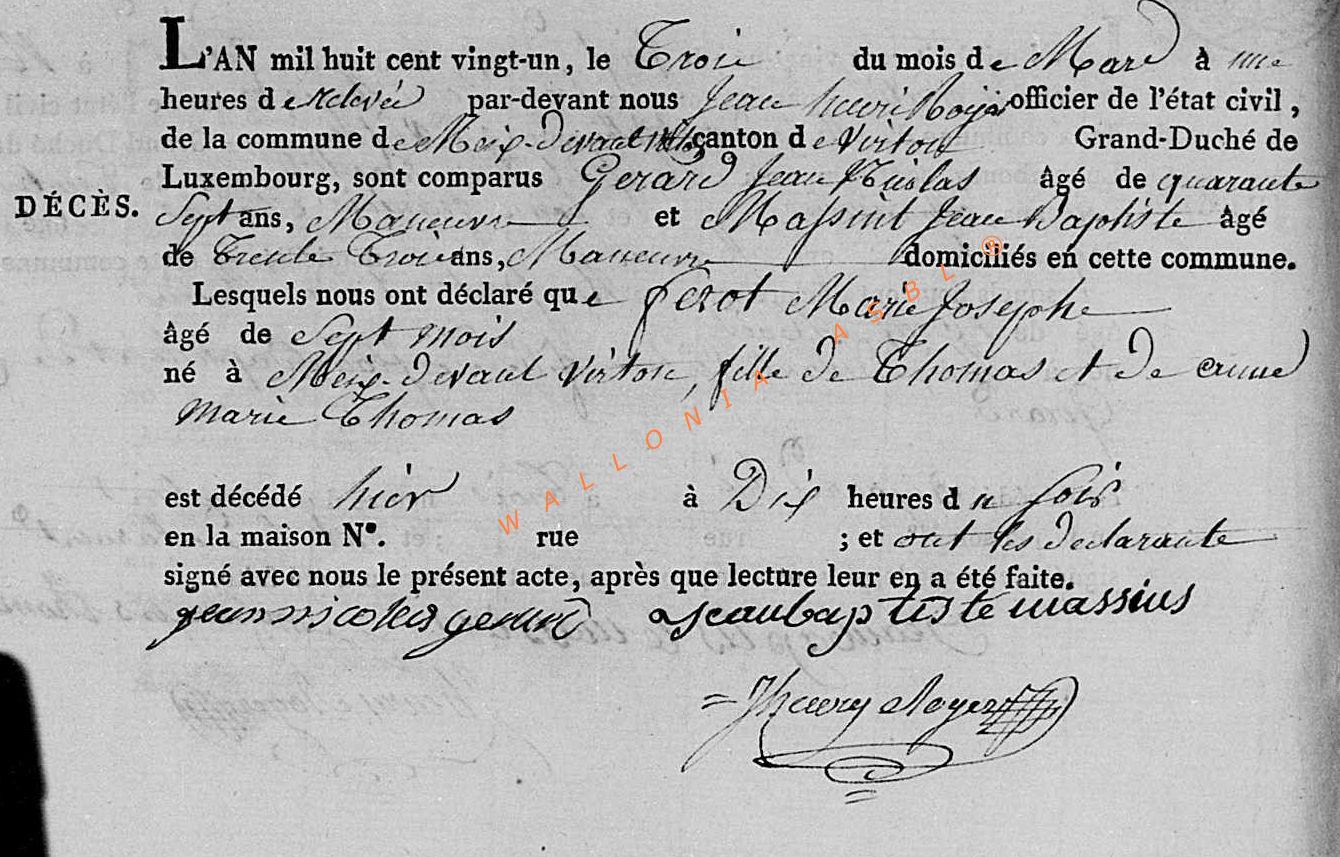 L'AN mil huit cent vingt-un, le Trois du mois de Mars à une
heures de Relevée par-devant nous Jean henri Royer officier de l'état civil,
de la commune de Meix-devant Virton canton de Virton Grand-Duché de
Luxembourg, sont comparus Gerard Jean Nicolas âgé de quarante
DÉCÈS.
Sept ans, Maneuvre et Massint Jean Baptiste âgé
de Trente Trois ans, Maneuvre domiciliés en cette commune.
Lesquels nous ont déclaré que ferot Marie Josephe
âgé de Sept mois
né à Meix-devant Virton, fille de Thomas et de anne
Marie Thomas
est décédé hier à Dix heures du soir
en la maison N°. rue ; et ont les declarants
signé avec nous le présent acte, après que lecture leur en a été faite.
jean nicolas gerard Jeanbaptiste massius
Jhenry Royer
WALLONIA ASBL ®